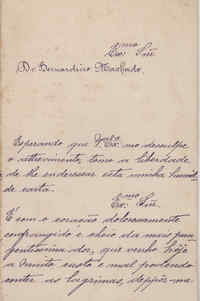 Exmo Snr
Dr Bernardino Machado.
Esperando que V. Exa me desculpe
o atrevimento, tomo a liberdade
de lhe endereçar esta minha humil-
de carta.
Exmo Snr.
É com o coração dolorosamente
confrangido e cheio da mais pun-
gentissima dor, que venho hoje
a muito custo e mal podendo
conter as lagrimas,